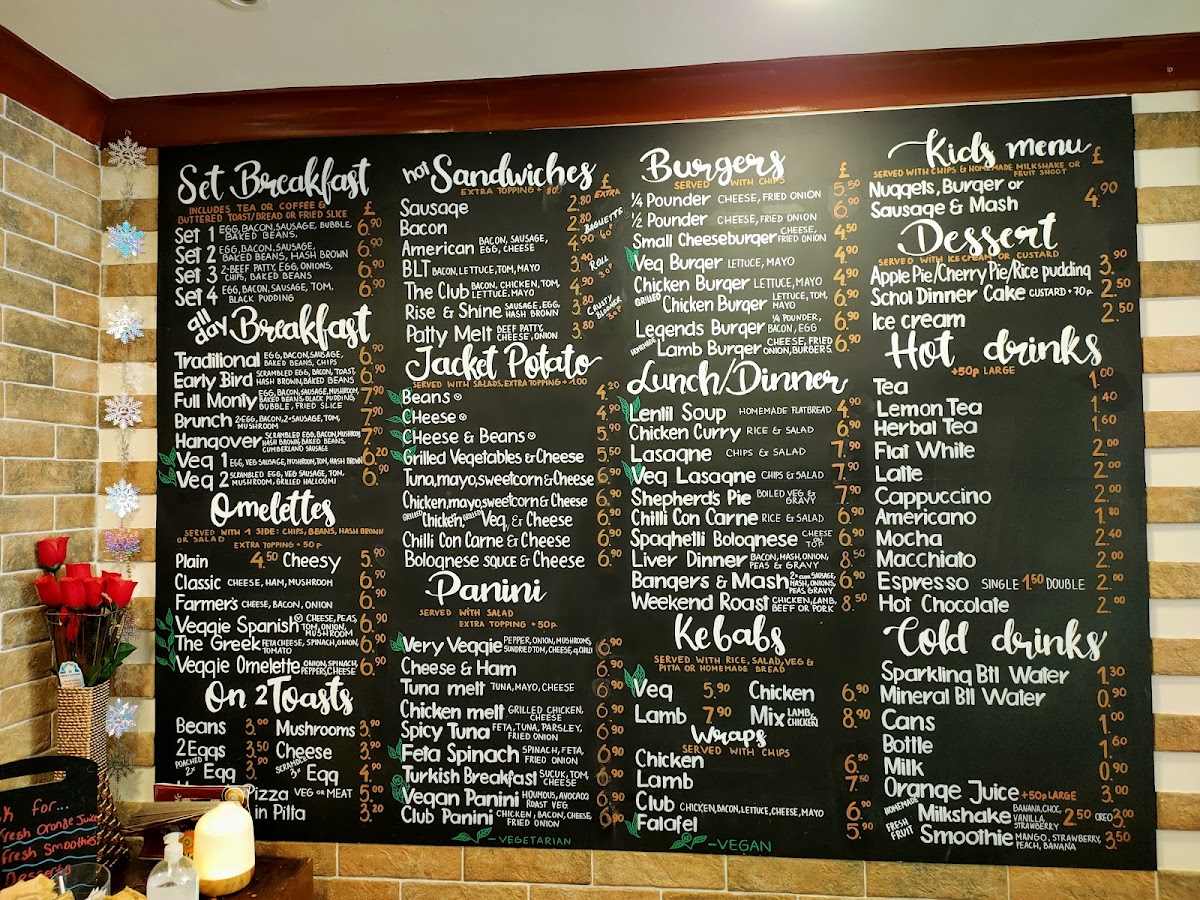 Set Breakfast
INCLUDES TEA OR COFFEE &
BUTTERED TOAST/BREAD OR FRIED SLICE £
Set 1 EGG, BACON, SAUSAGE, BUBBLE, 6.90
BAKED BEANS,
Set 2 EGG, BACON, SAUSAGE, 6.90
BAKED BEANS, HASH BROWN
Set 3 2·BEEF PATTY, EGG, ONIONS, 6.90
CHIPS, BAKED BEANS
Set 4 EGG, BACON, SAUSAGE, TOM, 6.90
BLACK PUDDING
all day Breakfast
Traditional EGG, BACON, SAUSAGE, 6.90
BAKED BEANS, CHIPS
Early Bird SCRAMBLED EGG, BACON, TOAST, 6.90
HASH BROWN, BAKED BEANS
Full Monty EGG, BACON, SAUSAGE, MUSHROOM, 7.90
BAKED BEANS, BLACK PUDDING,
BUBBLE, FRIED SLICE
Brunch 2·EGG, BACON, 2·SAUSAGE, TOM, 7.90
MUSHROOM
Hangover SCRAMBLED EGG, BACON, MUSHROOM 7.90
HASH BROWN, BAKED BEANS,
CUMBERLAND SAUSAGE
Veg 1 EGG, VEG SAUSAGE, MUSHROOM, TOM, HASH BROWN 6.20
Veg 2 SCRAMBLED EGG, VEG SAUSAGE, TOM, 6.90
MUSHROOM, GRILLED HALLOUMI
Omelettes
SERVED WITH 1 SIDE: CHIPS, BEANS, HASH BROWN
OR SALAD
EXTRA TOPPING + 50 p.
Plain 4.50 Cheesy 5.90
Classic CHEESE, HAM, MUSHROOM 6.90
Farmer's CHEESE, BACON, ONION 6.90
Veggie Spanish CHEESE, PEAS, 6.90
TOM, ONION,
MUSHROOM
The Greek FETA CHEESE, SPINACH, ONION, 6.90
TOMATO
Veggie Omelette ONION, SPINACH, 6.90
PEPPERS, CHEESE
On 2 Toasts
Beans 3.00 Mushrooms 3.90
2 Eggs 3.50 Cheese 3.90
POACHED 2x Egg 3.90 SCRAMBLED 3x Egg 4.90
Pizza VEG OR MEAT 5.90
in Pitta 3.20
k for...
resh Orange Juice
Fresh Smoothies
Desserts
hot Sandwiches £
EXTRA TOPPING + 80p
EXTRA
BAGUETTE
ROLL
CRUSTY
Sausage 2.80
Bacon 2.80
American BACON, SAUSAGE, 4.90
EGG, CHEESE
BLT BACON, LETTUCE, TOM, MAYO 3.40
The Club BACON, CHICKEN, TOM, 4.90
LETTUCE, MAYO
Rise & Shine SAUSAGE, EGG, 3.80
HASH BROWN
Patty Melt BEEF PATTY, 3.80
CHEESE, ONION
Jacket Potato
SERVED WITH SALADS, EXTRA TOPPING + 1.00
Beans 4.20
CHeese 4.90
CHeese & Beans 5.90
Grilled Vegetables & Cheese 5.50
Tuna, mayo, sweetcorn & Cheese 6.90
Chicken, mayo, sweetcorn & Cheese 6.90
GRILLED Chicken, GRILLED Veg, & Cheese 6.90
Chilli Con Carne & Cheese 6.90
Bolognese sauce & Cheese 6.90
Panini
SERVED WITH SALAD
EXTRA TOPPING + 50 p.
Very Veggie PEPPER, ONION, MUSHROOMS, 6.90
SUNDRIED TOM, CHEESE, CHILLI
Cheese & Ham 6.90
Tuna melt TUNA, MAYO, CHEESE 6.90
Chicken melt GRILLED CHICKEN, 6.90
CHEESE
Spicy Tuna FETA, TUNA, PARSLEY, 6.90
FRIED ONION
Feta Spinach SPINACH, FETA, 6.90
ONION
Turkish Breakfast SUCUK, TOM, 6.90
CHEESE
Vegan Panini HOUMOUS, AVOCADO 6.90
ROAST VEG.
Club Panini CHICKEN, BACON, CHEESE, 6.90
FRIED ONION
-VEGETARIAN
Burgers £
SERVED WITH CHIPS
¼ Pounder CHEESE, FRIED ONION 5.50
½ Pounder CHEESE, FRIED ONION 6.90
Small Cheeseburger CHEESE, 4.50
FRIED ONION
Veg Burger LETTUCE, MAYO 4.90
Chicken Burger LETTUCE, MAYO 4.90
GRILLED Chicken Burger LETTUCE, TOM, 6.90
MAYO
Legends Burger ¼ POUNDER, 6.90
BACON, EGG
HOMEMADE Lamb Burger CHEESE, FRIED 6.90
ONION, BURGERS
Lunch/Dinner
Lentil Soup HOMEMADE FLATBREAD 4.90
Chicken Curry RICE & SALAD 6.90
Lasagne CHIPS & SALAD 7.90
Veg Lasagne CHIPS & SALAD 7.90
Shepherd's Pie BOILED VEG & 7.90
GRAVY
Chilli Con Carne RICE & SALAD 6.90
Spaghetti Bolognese CHEESE 6.90
ON TOP
Liver Dinner BACON, MASH, ONION, 8.50
PEAS & GRAVY
Bangers & Mash 2x CUM. SAUSAGE, 6.90
MASH, ONIONS,
PEAS, GRAVY
Weekend Roast CHICKEN, LAMB, 8.50
BEEF OR PORK
Kebabs
SERVED WITH RICE, SALAD, VEG &
PITTA OR HOMEMADE BREAD
Veg 5.90 Chicken 6.90
Lamb 7.90 Mix LAMB, CHICKEN 8.90
Wraps
SERVED WITH CHIPS
Chicken 6.50
Lamb 7.50
Club CHICKEN, BACON, LETTUCE, CHEESE, MAYO 6.90
Falafel 5.90
-VEGAN
Kids menu £
SERVED WITH CHIPS & HOMEMADE MILKSHAKE OR
FRUIT SHOOT
Nuggets, Burger or
Sausage & Mash 4.90
Dessert
SERVED WITH ICE CREAM OR CUSTARD
Apple Pie/Cherry Pie/Rice pudding 3.90
Schol Dinner Cake CUSTARD + 70p. 2.50
Ice cream 2.50
Hot drinks
+50p LARGE
Tea 1.00
Lemon Tea 1.40
Herbal Tea 1.60
Flat White 2.00
Latte 2.00
Cappuccino 2.00
Americano 1.80
Mocha 2.40
Macchiato 2.00
Espresso SINGLE 1.60 DOUBLE 2.00
Hot Chocolate 2.00
Cold drinks
Sparkling Btl Water 1.30
Mineral Btl Water 0.90
Cans 1.00
Bottle 1.60
Milk 0.90
Orange Juice +50p LARGE 3.00
HOMEMADE Milkshake BANANA, CHOC, 2.50 OREO 3.00
VANILLA,
STRAWBERRY
FRESH FRUIT Smoothie MANGO, STRAWBERRY, 3.50
PEACH, BANANA